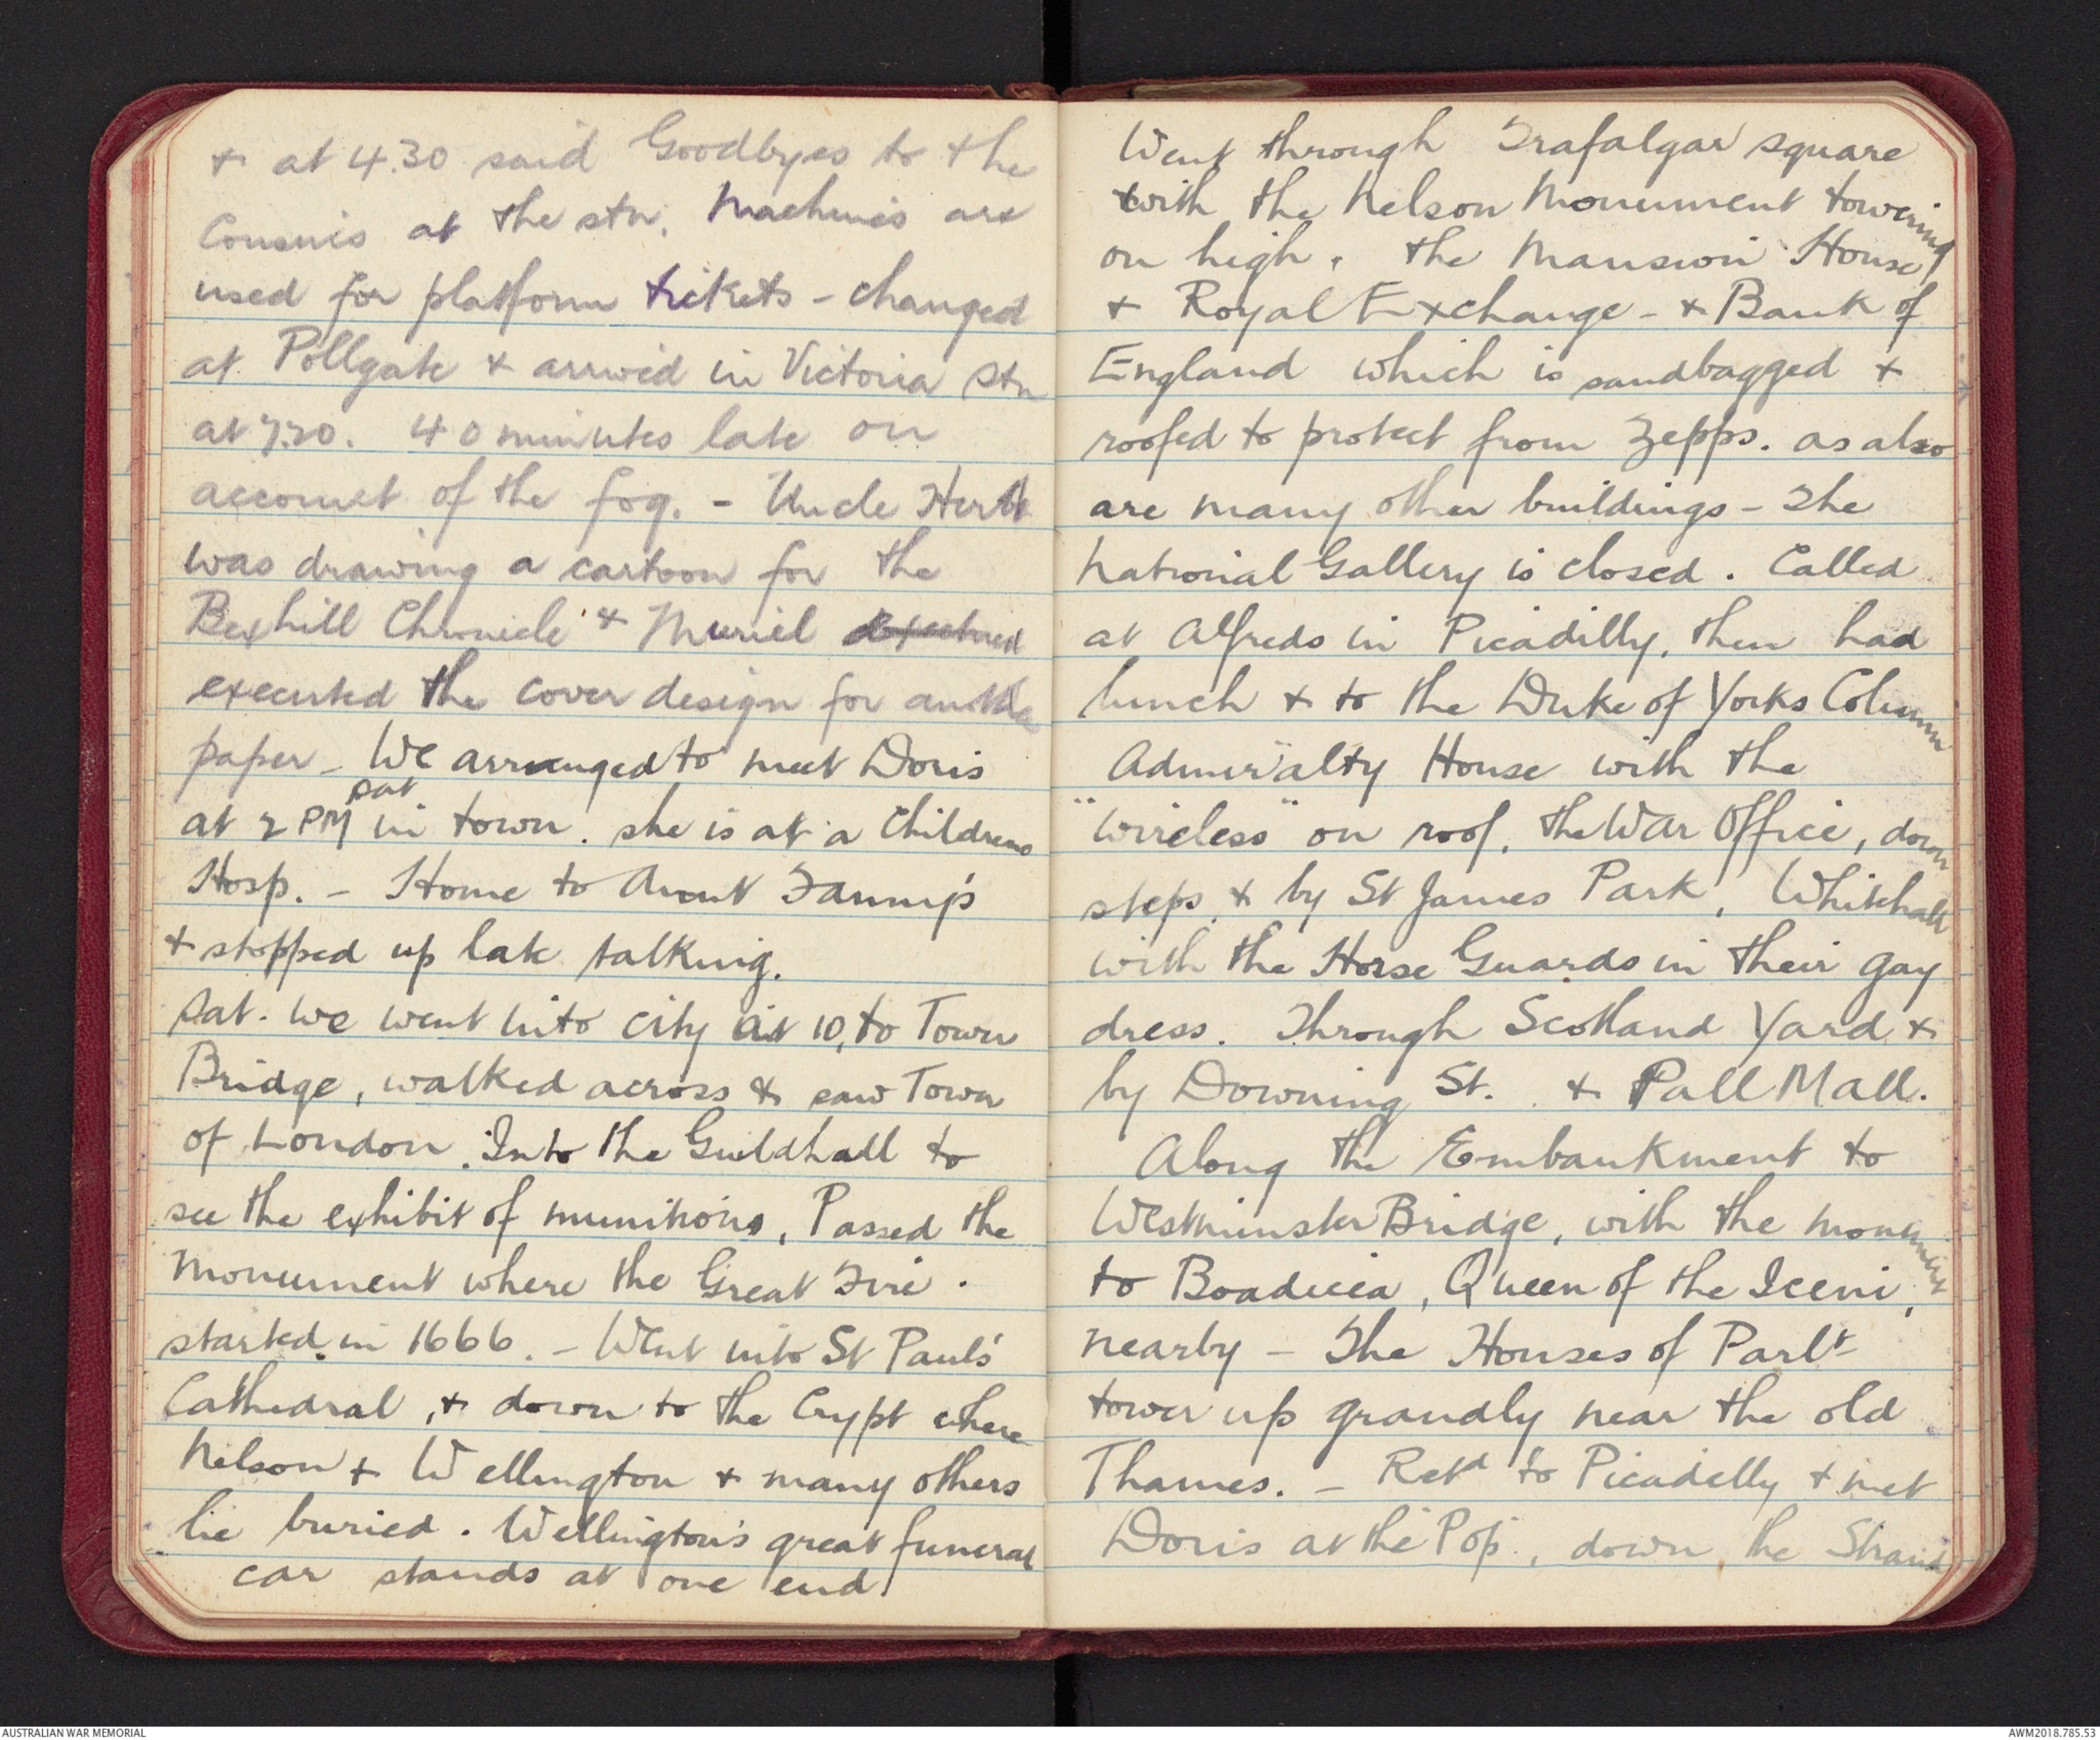 + at 4.30 said Goodbyes to the
Cousins at the stn. Machines are
used for platform tickets - changed
at Pollgate + arrived in Victoria Stn
at 7.20. 40 minutes late on
account of the fog. - Uncle Herb
was drawing a cartoon for the
Bexhill Chronicle + Muriel
executed the cover design for another
paper - We arranged to meet Doris
at 2 PM Sat in town. she is at a Childrens
Hosp. - Home to Aunt Fanny's
+ stopped up late talking.
Sat. We went into city at 10, to Tower
Bridge, walked across + saw Tower
of London. Into the Guildhall to
see the exhibit of munitions, Passed the
Monument where the Great Fire
started in 1666. - Went into St Paul's
Cathedral, + down to the Crypt where
Nelson + Wellington + many others
lie buried. Wellington's great funeral
car stands at one end.
Went through Trafalgar square
with the Nelson Monument towering
on high. the Mansion House
+ Royal Exchange - + Bank of
England which is sandbagged +
roofed to protect from Zepps. as also
are many other buildings - The
National Gallery is closed. Called
at Alfreds in Picadilly, then had
lunch + to the Duke of Yorks Column
Admiralty House with the
"wireless" on roof, the War Office, down
steps + by St James Park, Whitehall
with the Horse Guards in their gay
dress. Through Scotland Yard +
by Downing St. + Pall Mall.
Along the Embankment to
Westminster Bridge, with the monument
to Boadicea, Queen of the Iceni,
nearby - The Houses of Parlt
tower up grandly near the old
Thames. - Retd to Picadelly + met
Doris at the Pop., down the Strand
AUSTRALIAN WAR MEMORIAL
AWM2018.785.53